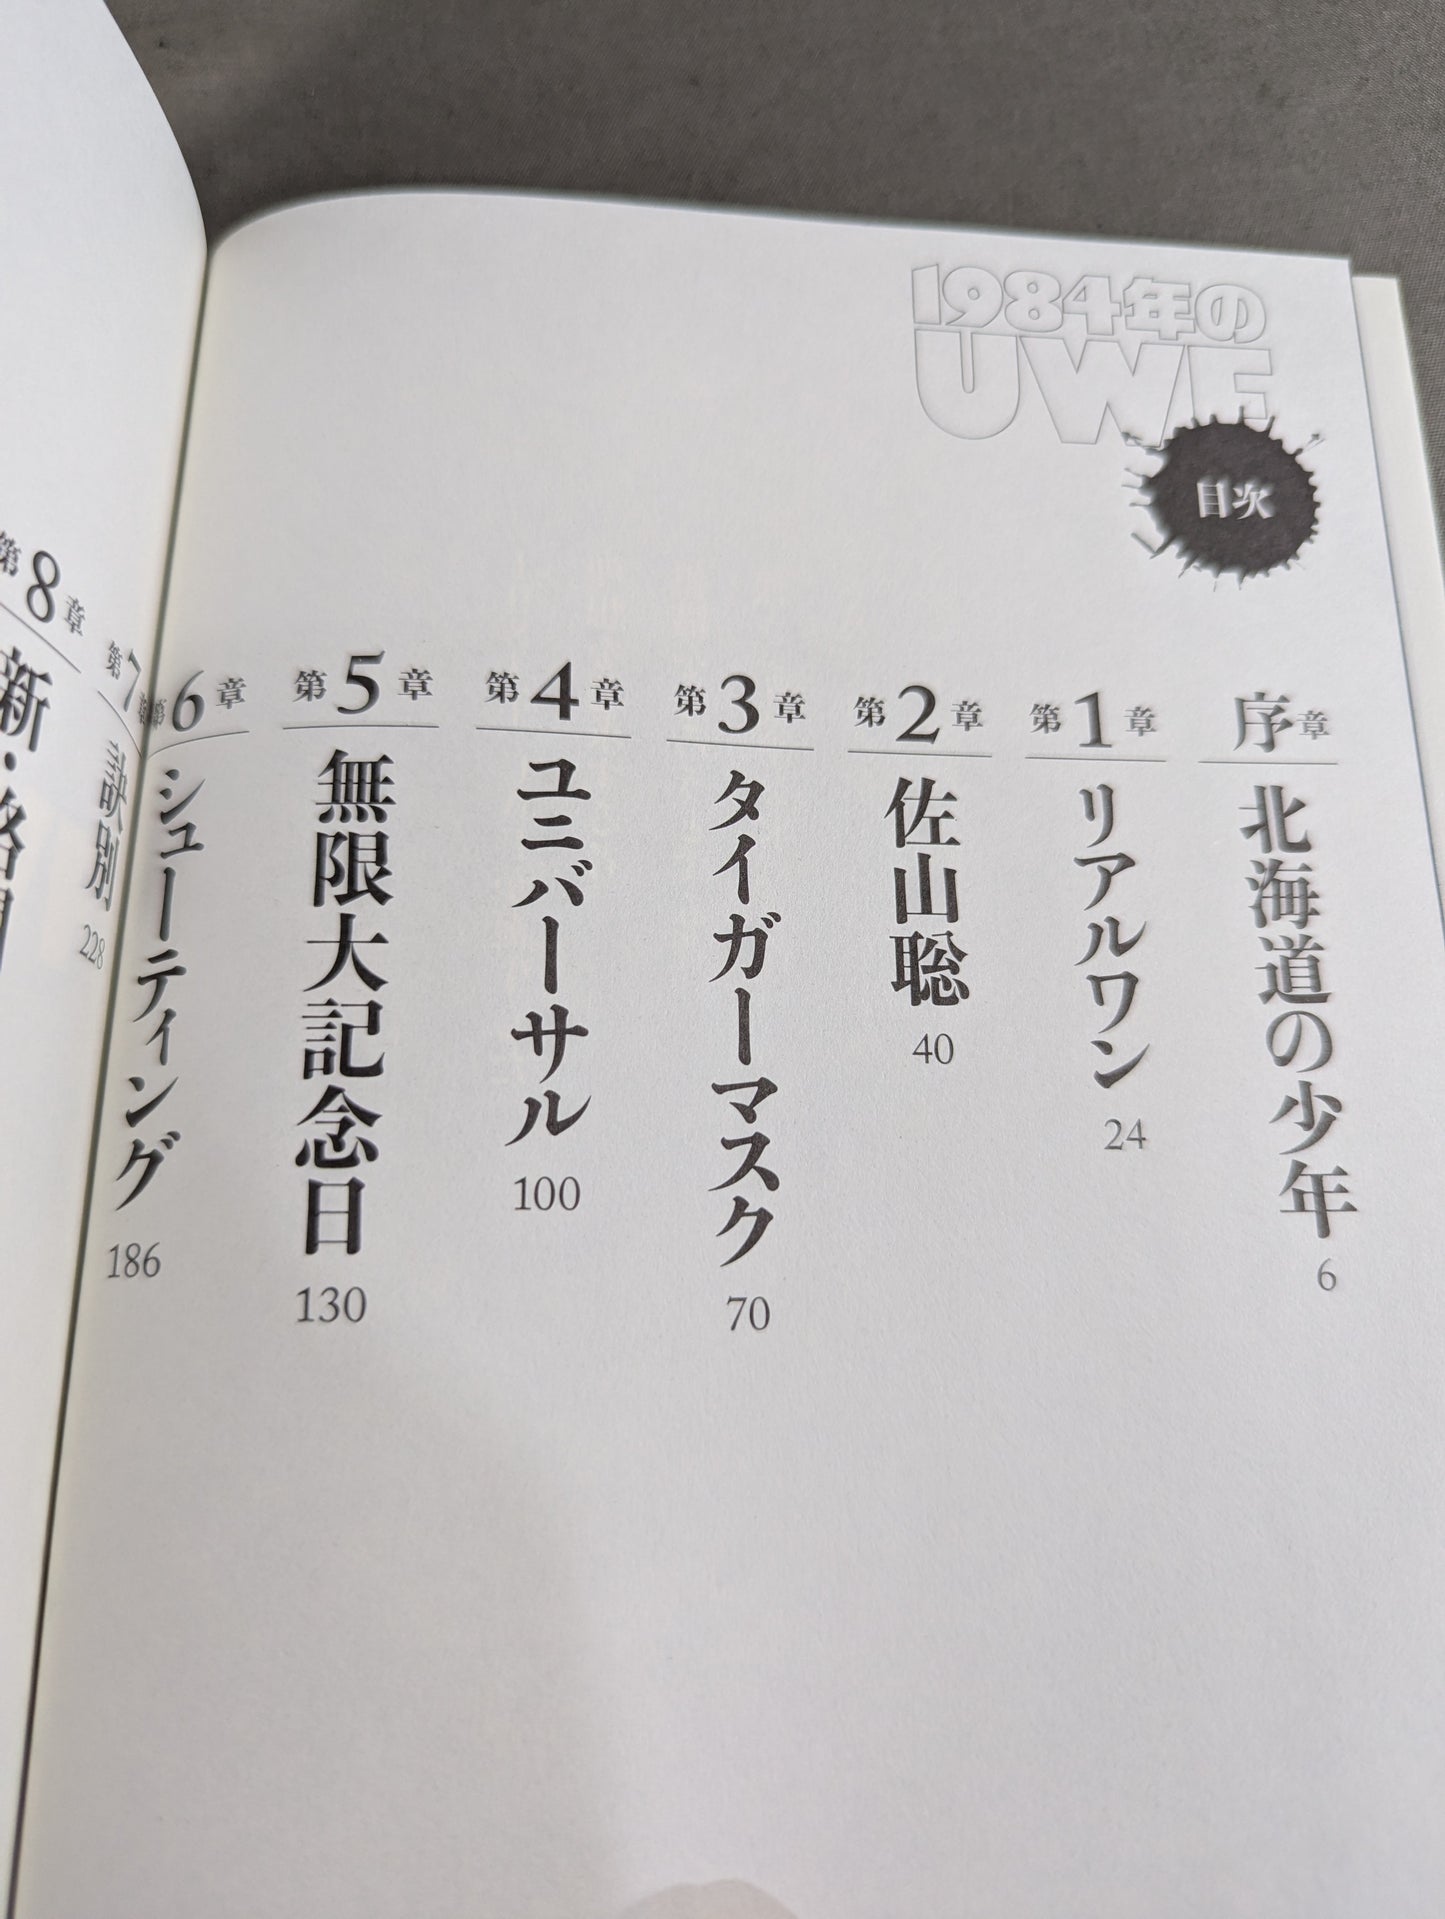 1984年の
UWF
目次
序章 北海道の少年 6
第1章 リアルワン 24
第2章 佐山聡 40
第3章 タイガーマスク 70
第4章 ユニバーサル 100
第5章 無限大記念日 130
第6章 シューティング 186
第7章 訣別 228
第8章 新・格闘